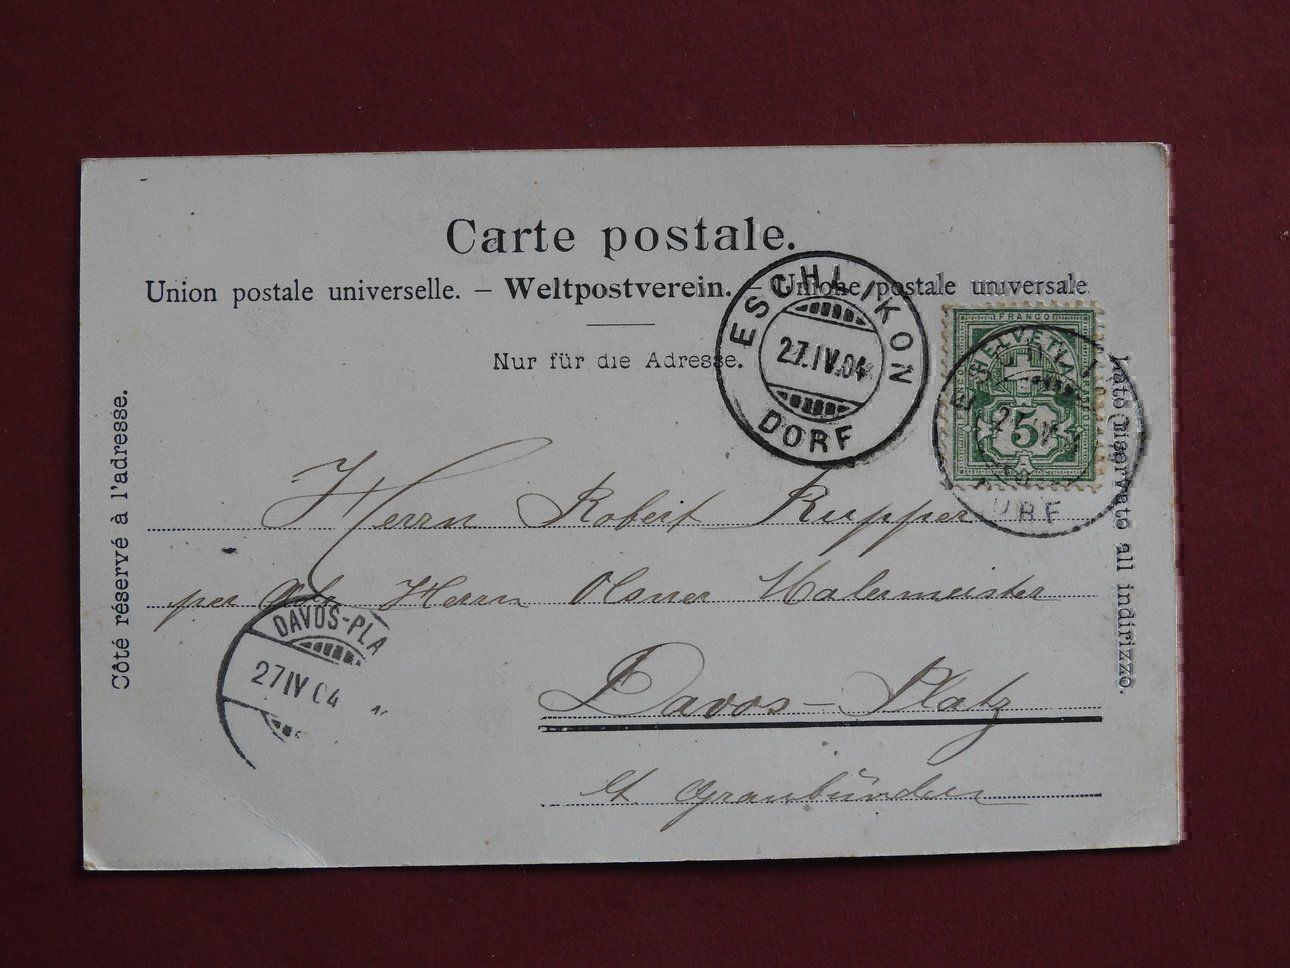 Carte postale.
Union postale universelle. – Weltpostverein. – Unione postale universale
Nur für die Adresse.
Côté réservé à l'adresse.
Lato riservato all indirizzo.
ESCHLIKON
27.IV.04
DORF
FRANCO
HELVETIA
5
Herrn Robert Rupper
per Adr Herrn Olsner Malermeister
Davos-Platz
Ct. Graubünden
DAVOS-PLA
27 IV 04